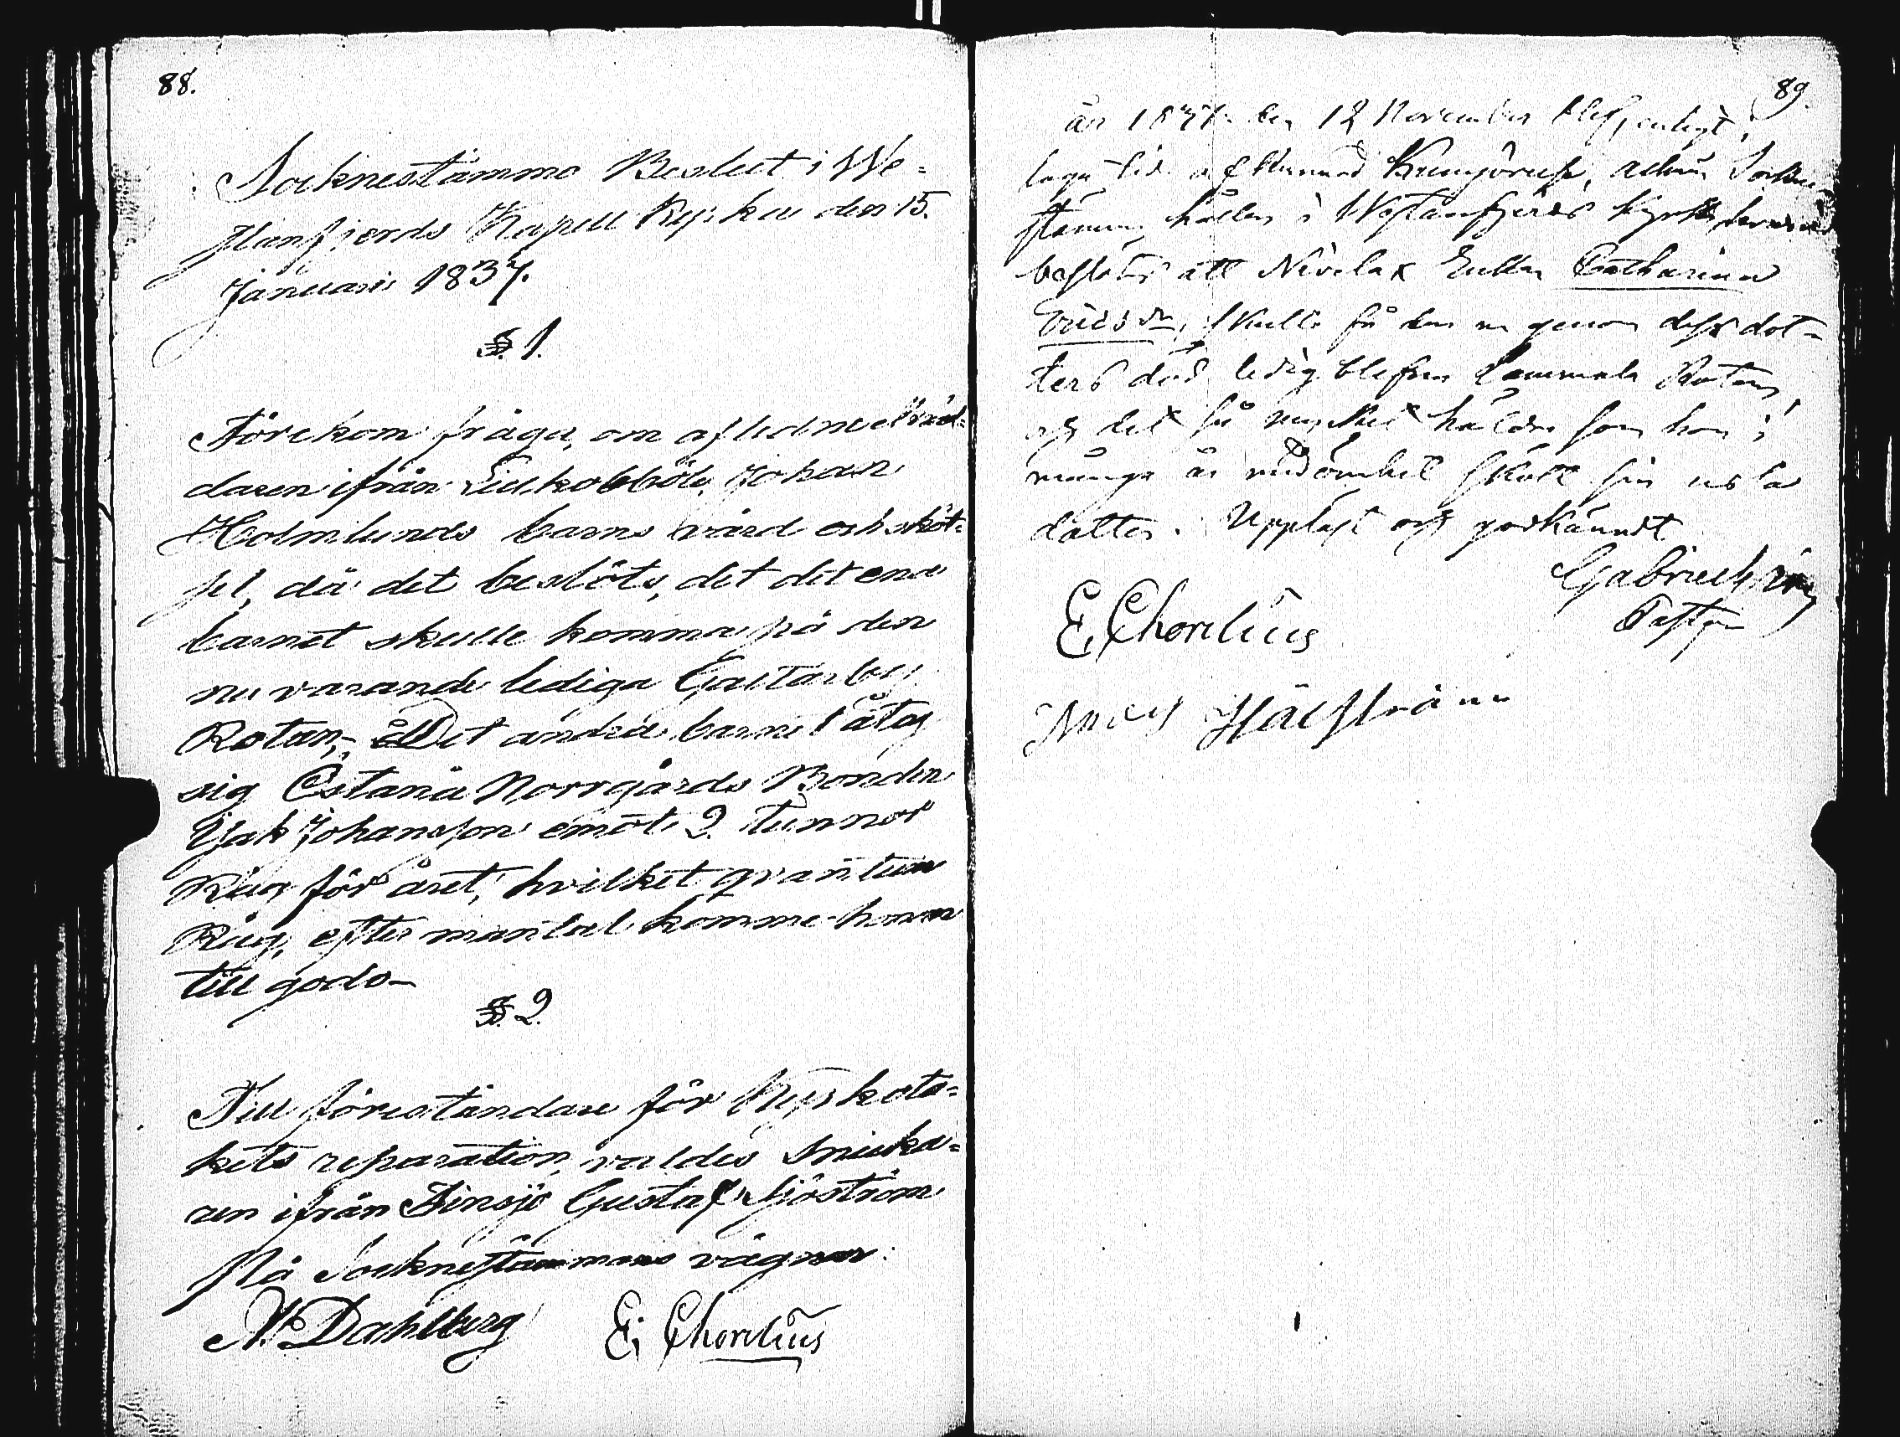 88.
Socknestämmo Beslut i We-
stanfjerds Kapell Kyrka den 15.
Januarii 1837.
§. 1.
Förekom fråga, om afledne Skräd-
daren ifrån Illskobböle, Johan
Holmlunds barns vård och sköt-
sel, då det beslöts, det det ena
barnet skulle komma på den
nu varande lediga Galtarby
Rotan, Det andra barnet åtog
sig Östanå Norrgårds Bonden
Isak Johansson emot 2. Tunnor
Råg för året, hvilket qvantum
Råg, efter mantal komme honom
till godo
§. 2.
Till föreståndare för Kyrkota-
kets reparation, valdes Snicka-
ren ifrån Finsjö Gustaf Sjöström
På Socknestämmans vägnar:
N. Dahlberg E. Chorelius
89.
år 1837 den 12 November blef, enligt
laga tid kungörelse, Socken-
stämma hållen i Westanfjerds Kyrka
beslöts att Nivelax Enkan Catharina
skulle få den nu genom dess dot-
ters död ledig blefna Rotan,
och det så mycket hälldre som hon i
många år med ömhet skött sin
dotter. Uppläst och godkändt
Gabriel
Pastor
E. Chorelius